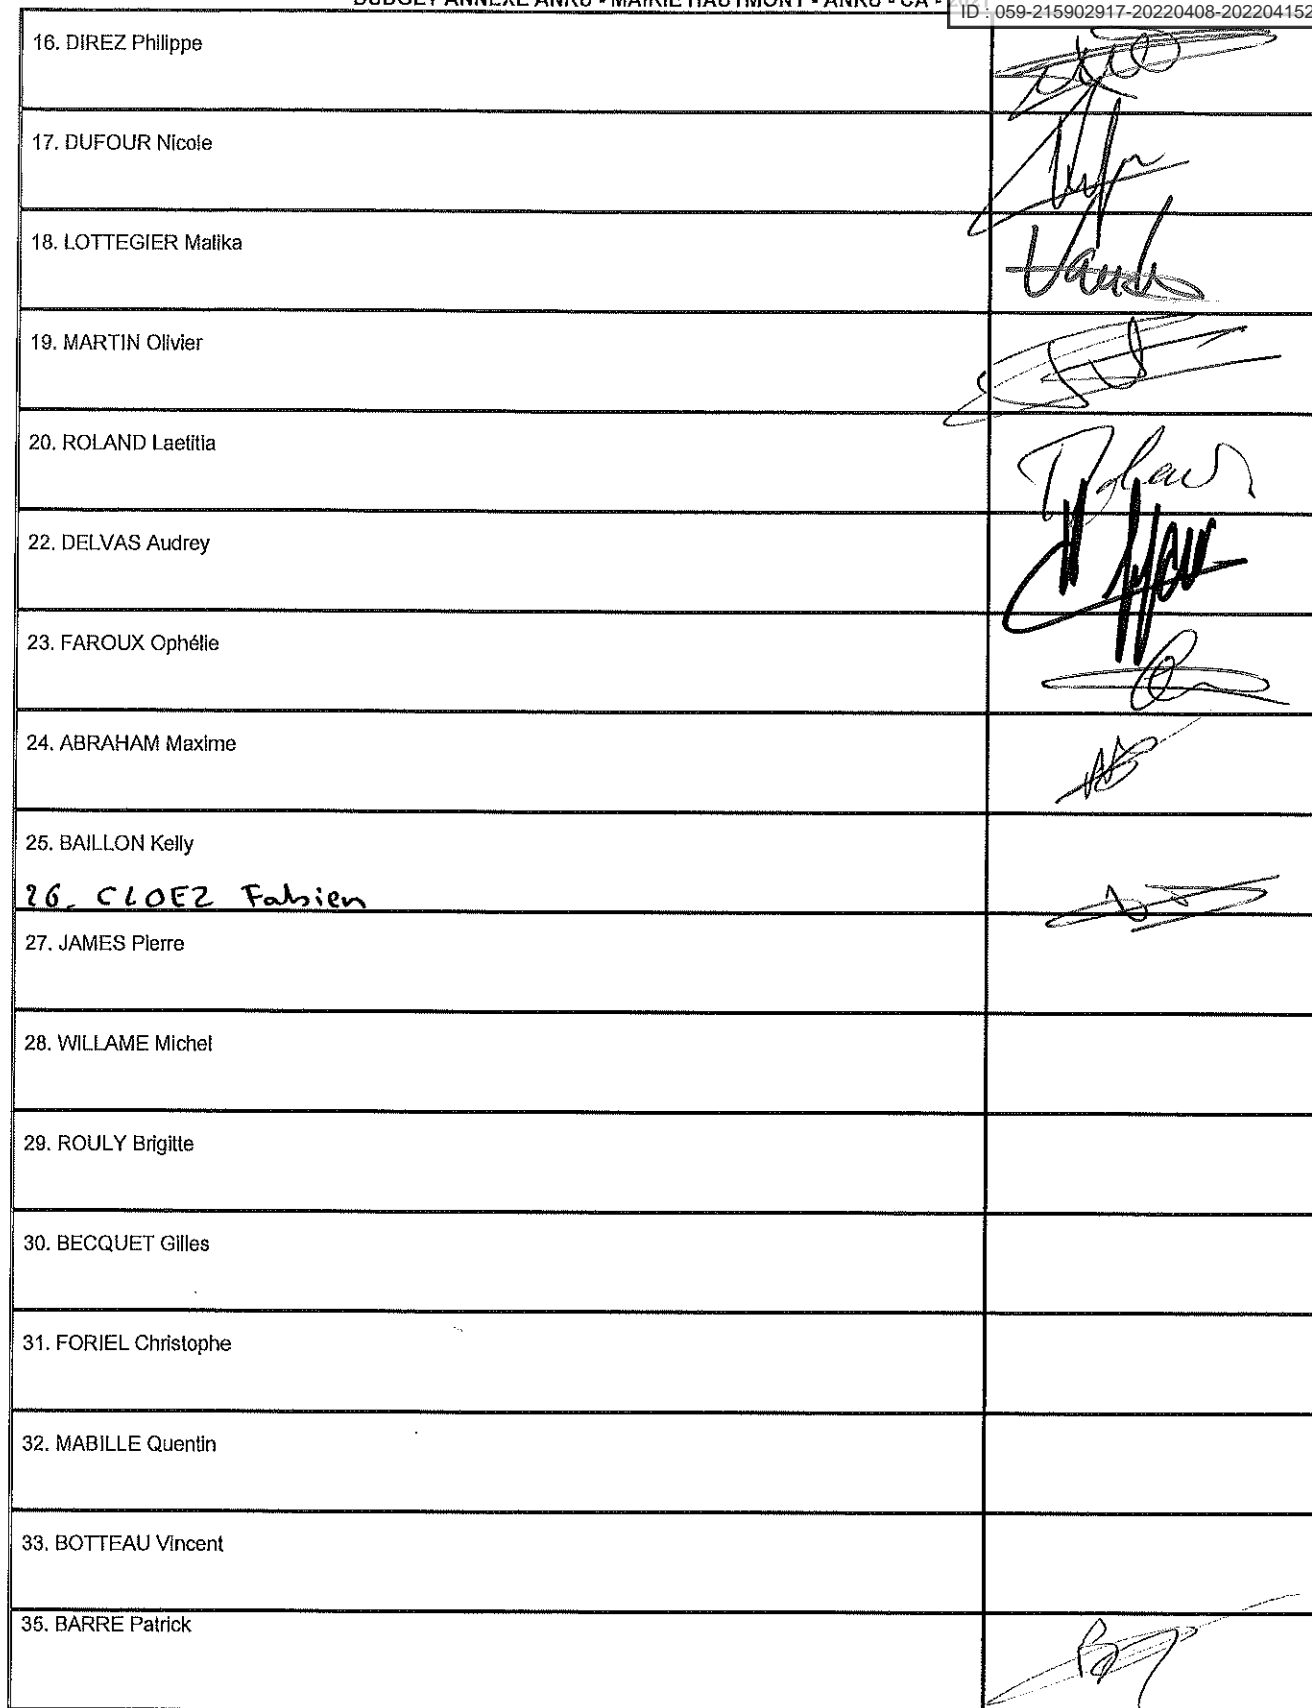 BUDGET ANNEXE ANRU - MAIRIE HAUTMONT - ANRU - CA - 2021
ID : 059-215902917-20220408-202204152
16. DIREZ Philippe
17. DUFOUR Nicole
18. LOTTEGIER Malika
19. MARTIN Olivier
20. ROLAND Laetitia
22. DELVAS Audrey
23. FAROUX Ophélie
24. ABRAHAM Maxime
25. BAILLON Kelly
26. CLOEZ Fabien
27. JAMES Pierre
28. WILLAME Michel
29. ROULY Brigitte
30. BECQUET Gilles
31. FORIEL Christophe
32. MABILLE Quentin
33. BOTTEAU Vincent
35. BARRE Patrick